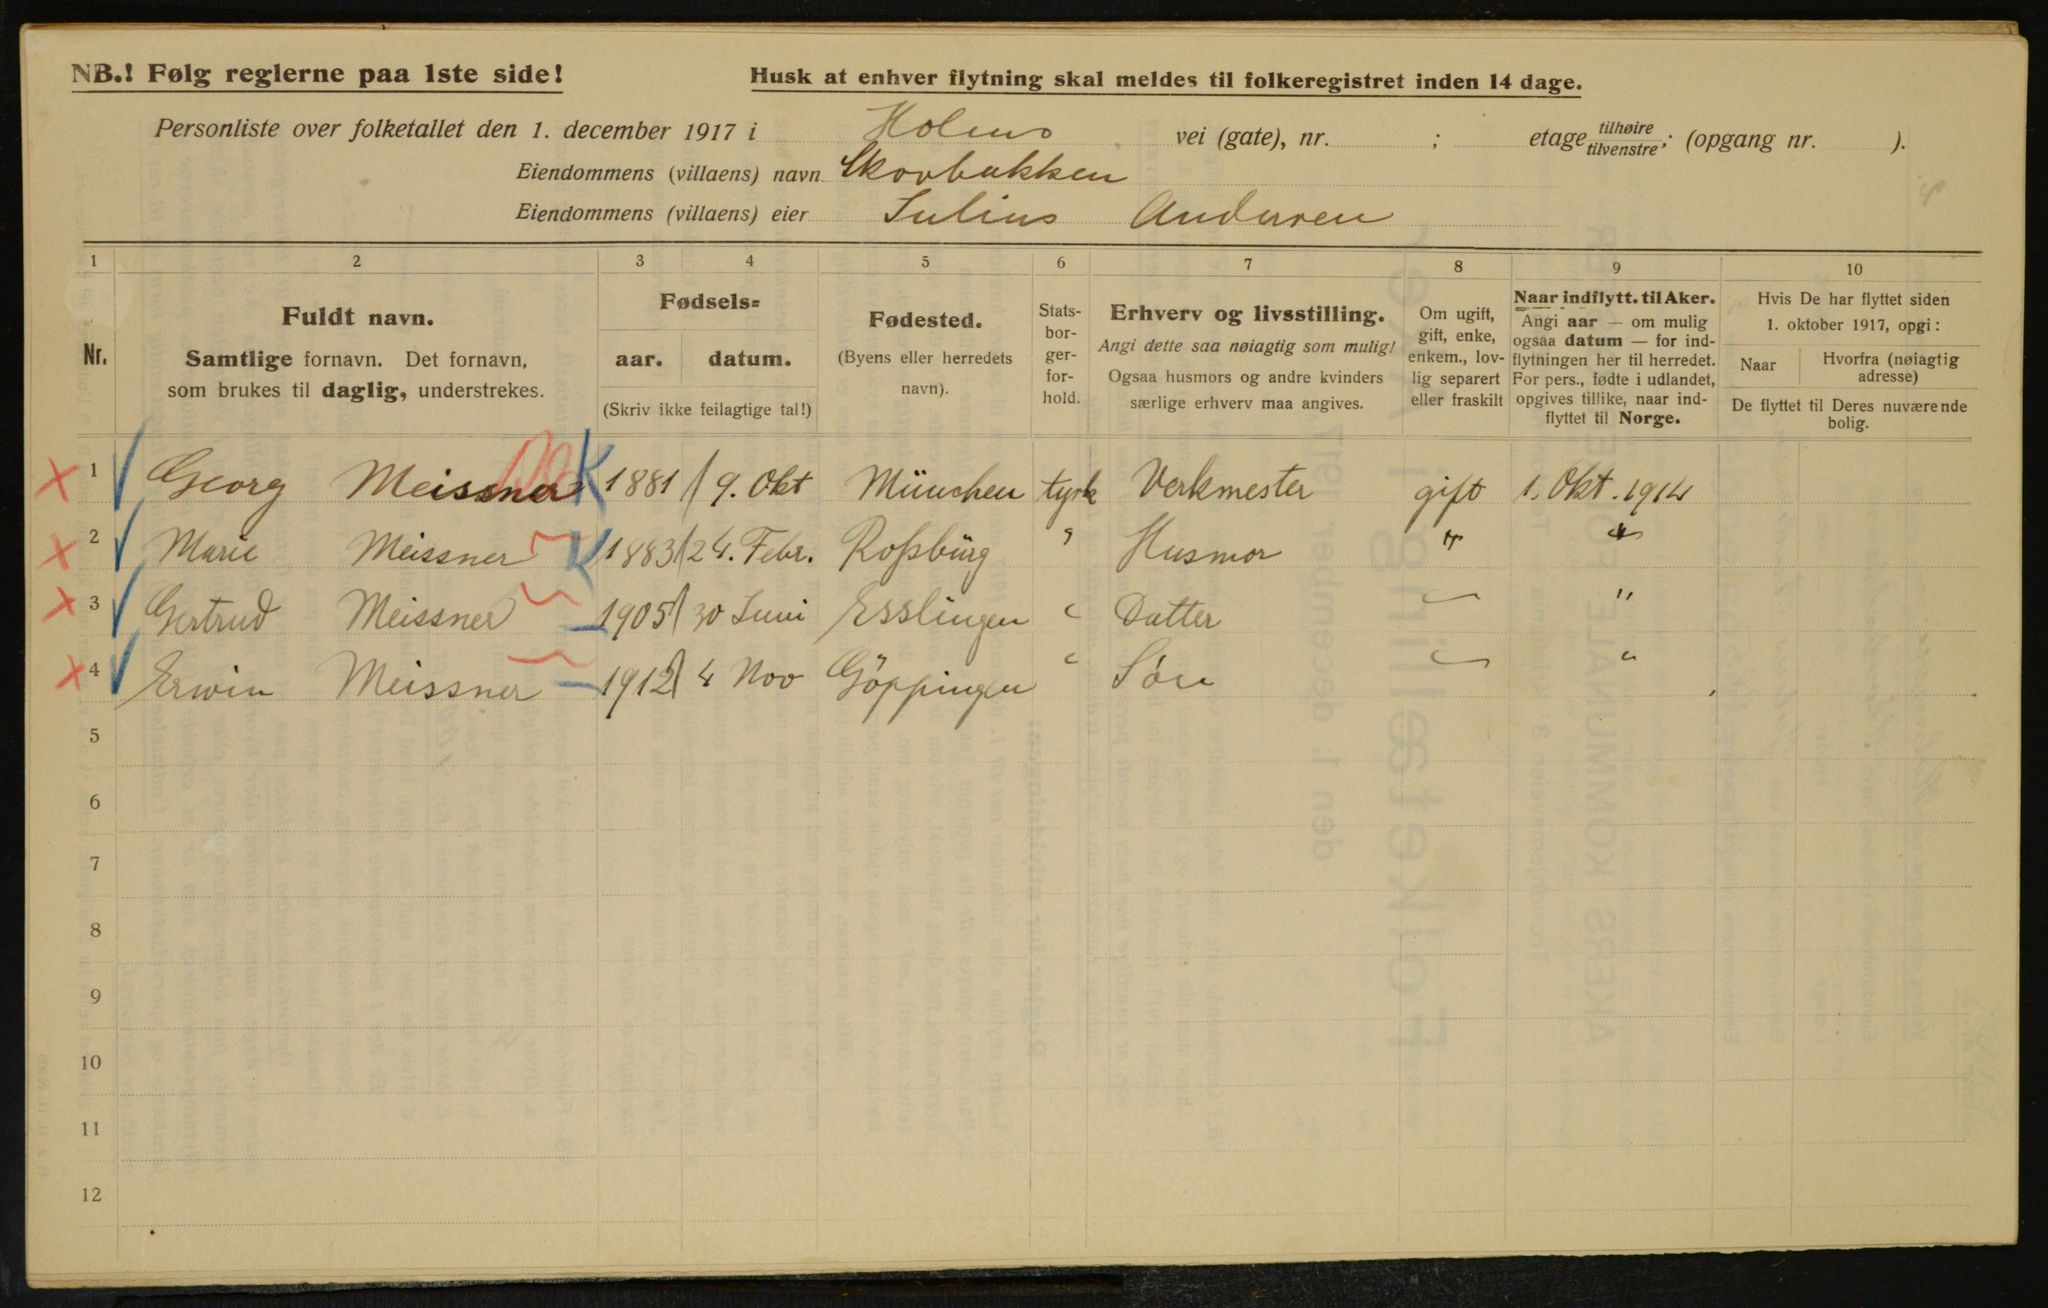 NB.! Følg reglerne paa 1ste side!
Husk at enhver flytning skal meldes til folkeregistret inden 14 dage.
Personliste over folketallet den 1. december 1917 i Holms vei (gate), nr. ; etage tilhøire tilvenstre; (opgang nr. ).
Eiendommens (villaens) navn Skovbakken
Eiendommens (villaens) eier Julius Andersen
1 2 3 4 5 6 7 8 9 10
Nr.
Fuldt navn.
Samtlige fornavn. Det fornavn,
som brukes til daglig, understrekes.
Fødsels=
aar. datum.
(Skriv ikke feilagtige tal!)
Fødested.
(Byens eller herredets
navn).
Stats-
bor-
ger-
for-
hold.
Erhverv og livsstilling.
Angi dette saa nøiagtig som mulig!
Ogsaa husmors og andre kvinders
særlige erhverv maa angives.
Om ugift,
gift, enke,
enkem., lov-
lig separert
eller fraskilt
Naar indflytt. til Aker.
Angi aar — om mulig
ogsaa datum — for ind-
flytningen her til herredet.
For pers., fødte i udlandet,
opgives tillike, naar ind-
flyttet til Norge.
Hvis De har flyttet siden
1. oktober 1917, opgi:
Naar
Hvorfra (nøiagtig
adresse)
De flyttet til Deres nuværende
bolig.
1 Georg Meissner K 1881 / 9. Okt München tysk Verkmester gift 1. Okt. 1914
2 Marie Meissner K 1883 / 24. Febr. Roßbürg " Husmor " "
3 Gertrud Meissner — 1905 / 30 Juni Esslingen " Datter — "
4 Erwin Meissner — 1912 / 4 Nov Göppingen " Søn — "
5
6
7
8
9
10
11
12